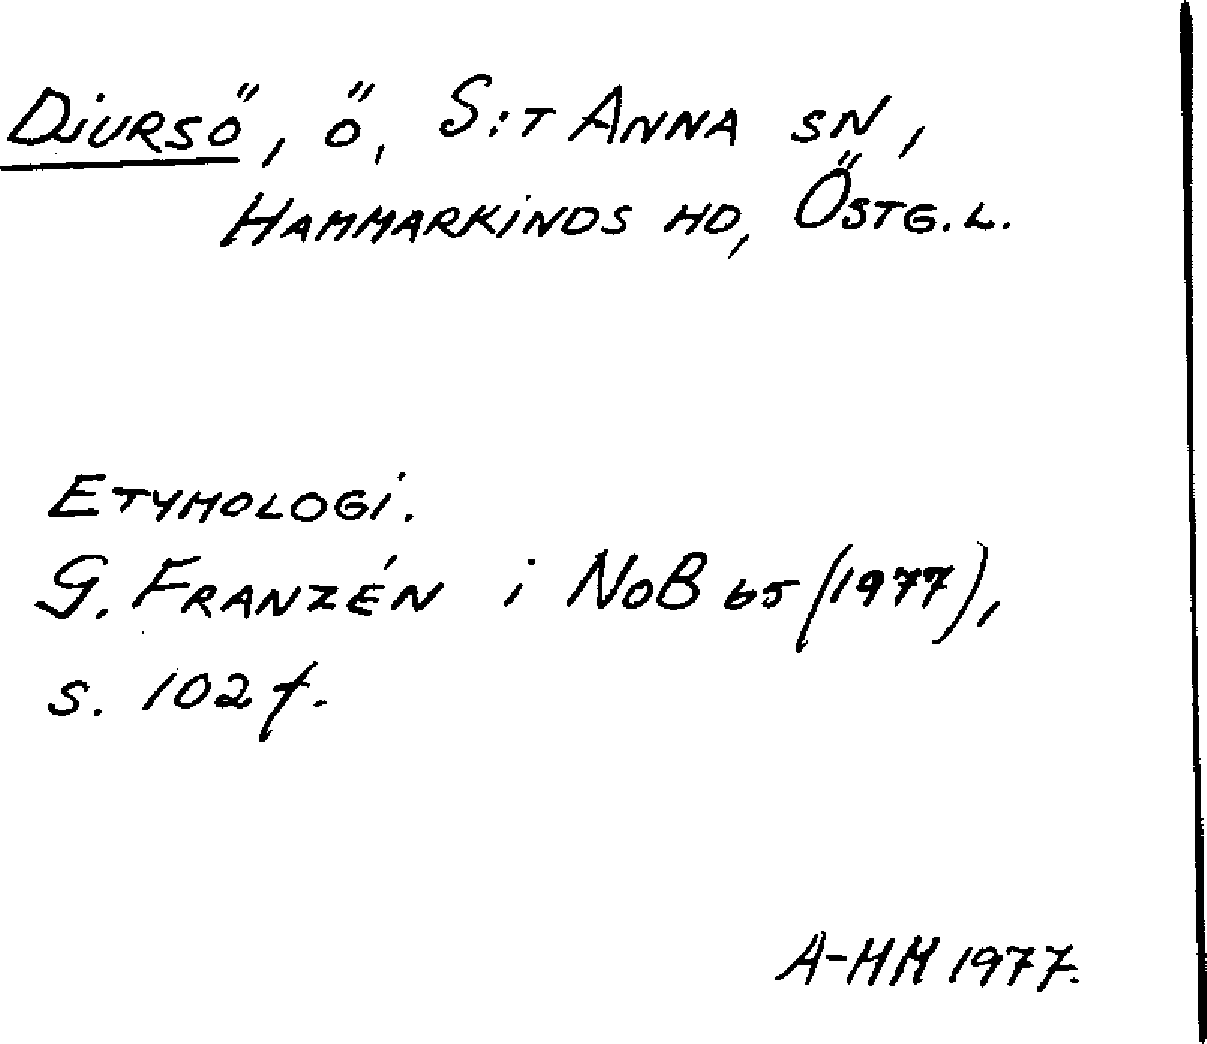 Djursö, ö, S:t Anna sn,
Hammarkinds hd, Östg.l.
Etymologi.
G. Franzén i NoB 65 (1977),
s. 102 f.
A-HM 1977.